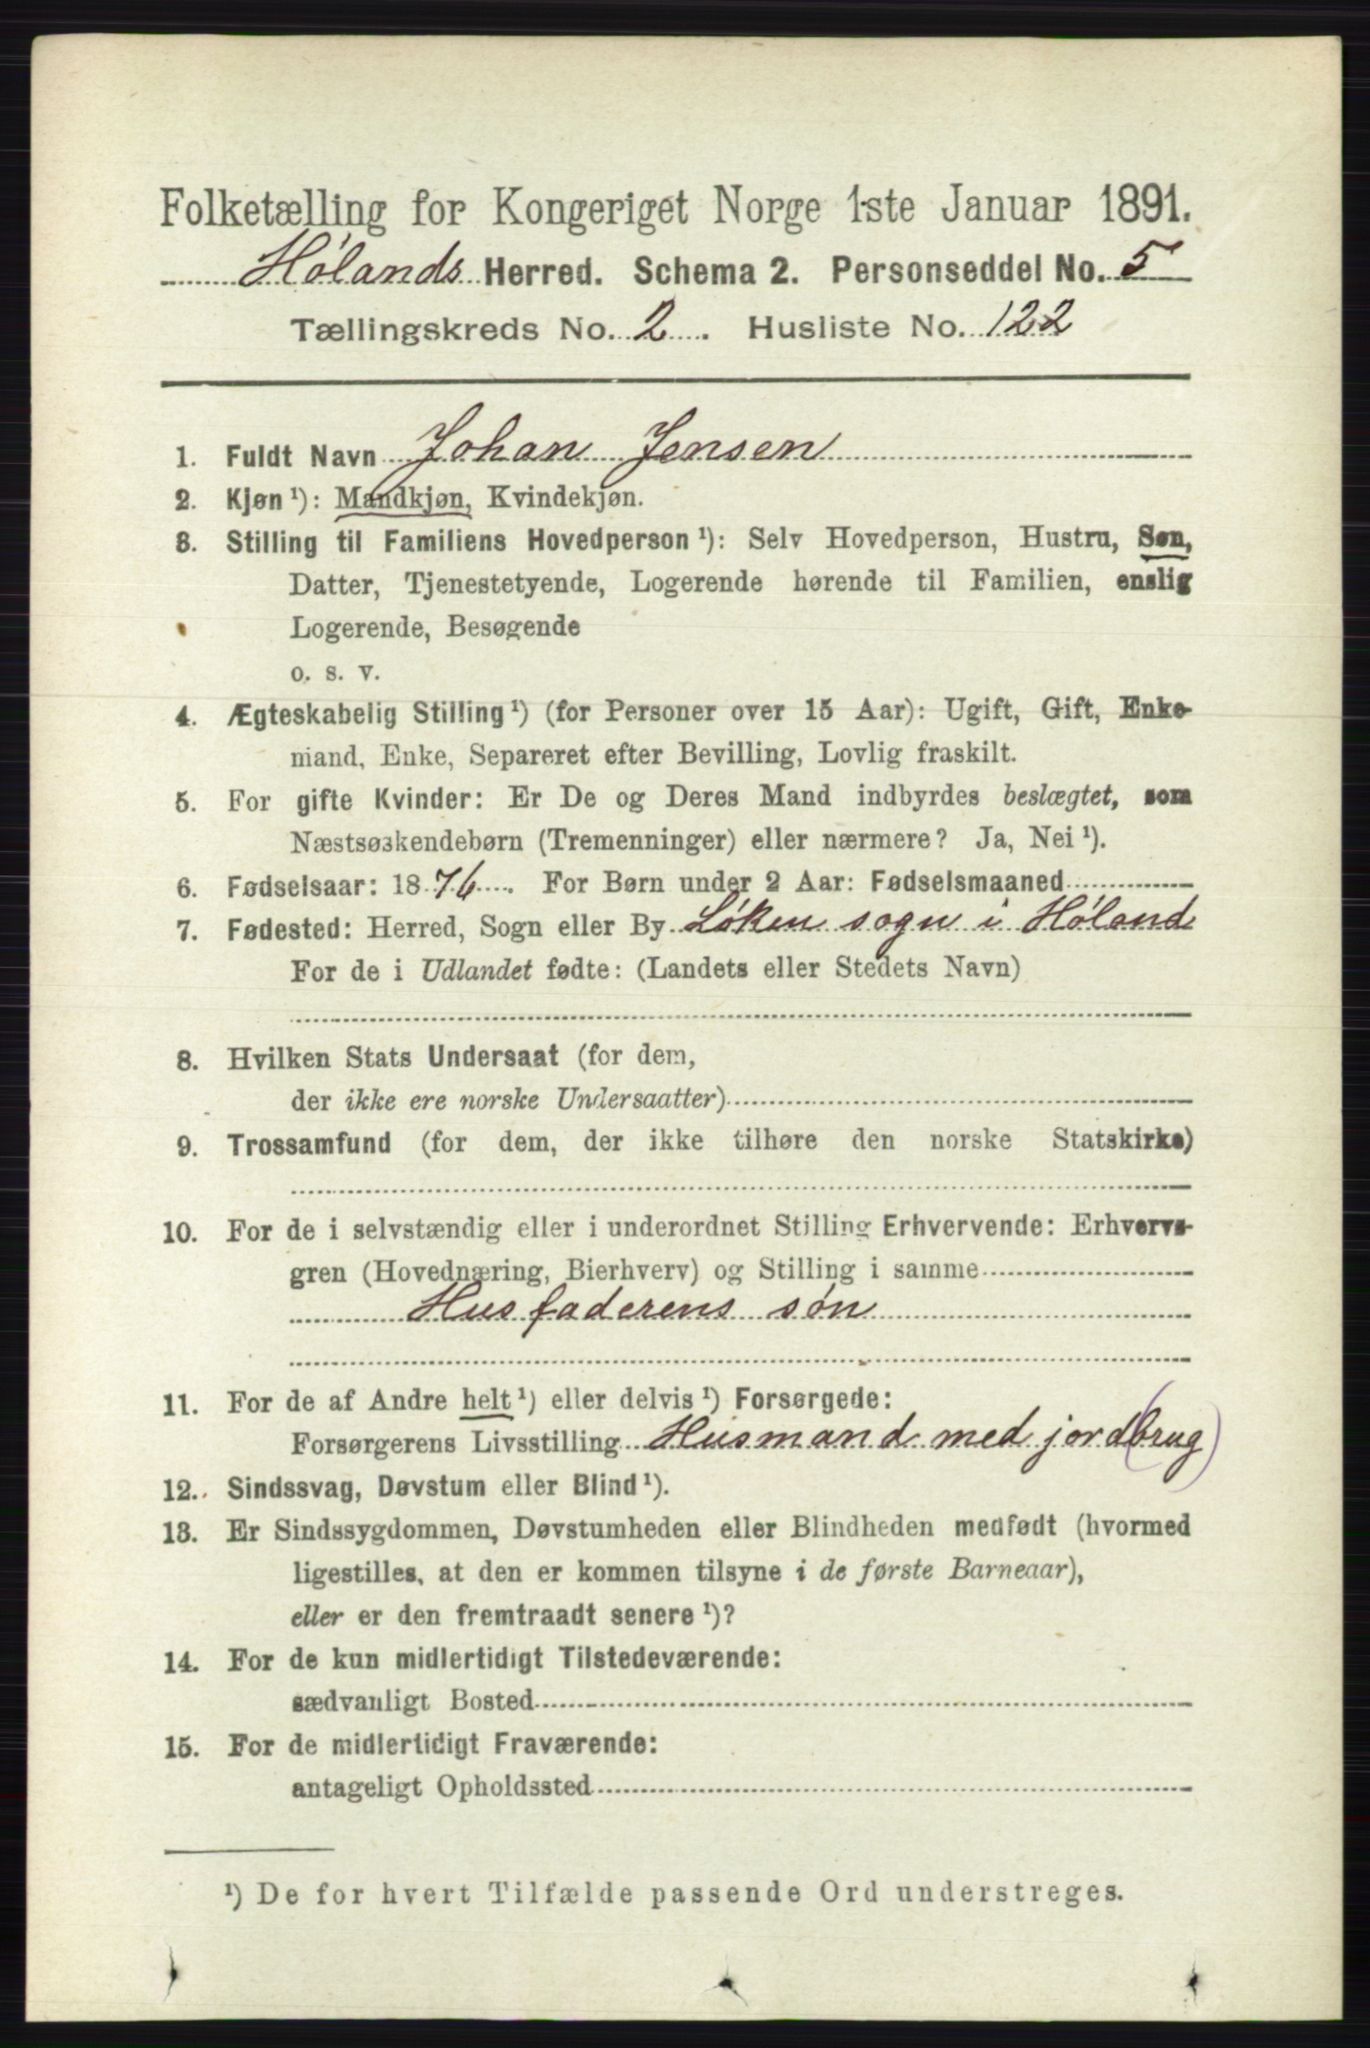 Folketælling for Kongeriget Norge 1ste Januar 1891.
Hølands Herred. Schema 2. Personseddel No. 5
Tællingskreds No. 2. Husliste No. 122
1. Fuldt Navn Johan Jensen
2. Kjøn ¹): Mandkjøn, Kvindekjøn.
3. Stilling til Familiens Hovedperson ¹): Selv Hovedperson, Hustru, Søn,
Datter, Tjenestetyende, Logerende hørende til Familien, enslig
Logerende, Besøgende
o. s. v.
4. Ægteskabelig Stilling ¹) (for Personer over 15 Aar): Ugift, Gift, Enke-
mand, Enke, Separeret efter Bevilling, Lovlig fraskilt.
5. For gifte Kvinder: Er De og Deres Mand indbyrdes beslægtet, som
Næstsøskendebørn (Tremenninger) eller nærmere? Ja, Nei ¹).
6. Fødselsaar: 1876. For Børn under 2 Aar: Fødselsmaaned
7. Fødested: Herred, Sogn eller By Løken sogn i Høland
For de i Udlandet fødte: (Landets eller Stedets Navn)
8. Hvilken Stats Undersaat (for dem,
der ikke ere norske Undersaatter)
9. Trossamfund (for dem, der ikke tilhøre den norske Statskirke)
10. For de i selvstændig eller i underordnet Stilling Erhvervende: Erhvervs-
gren (Hovednæring, Bierhverv) og Stilling i samme
Husfaderens søn
11. For de af Andre helt ¹) eller delvis ¹) Forsørgede:
Forsørgerens Livsstilling Husmand med jord(brug)
12. Sindssvag, Døvstum eller Blind ¹).
13. Er Sindssygdommen, Døvstumheden eller Blindheden medfødt (hvormed
ligestilles, at den er kommen tilsyne i de første Barneaar),
eller er den fremtraadt senere ¹)?
14. For de kun midlertidigt Tilstedeværende:
sædvanligt Bosted
15. For de midlertidigt Fraværende:
antageligt Opholdssted
¹) De for hvert Tilfælde passende Ord understreges.